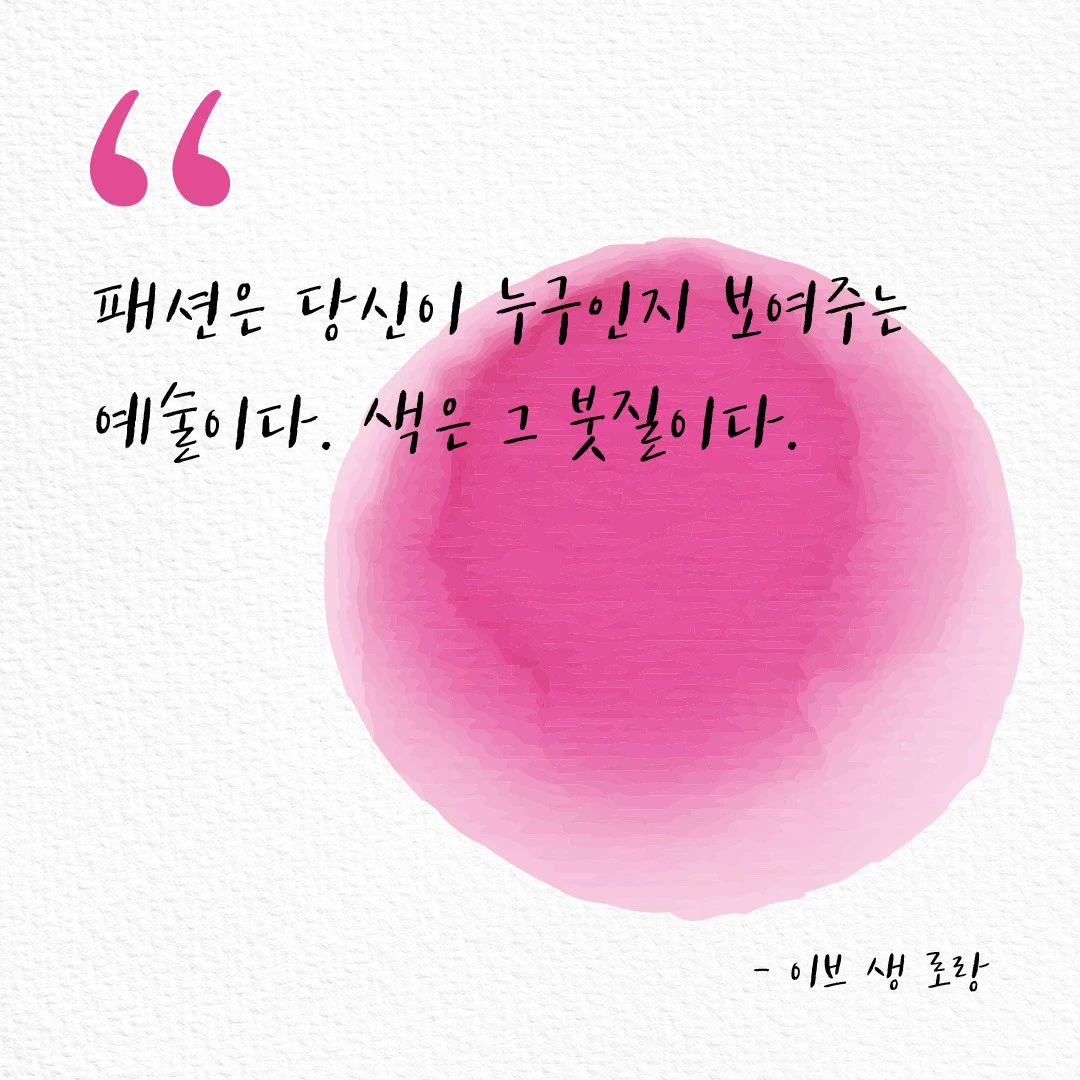 “
패션은 당신이 누구인지 보여주는
예술이다. 색은 그 붓질이다.
- 이브 생 로랑